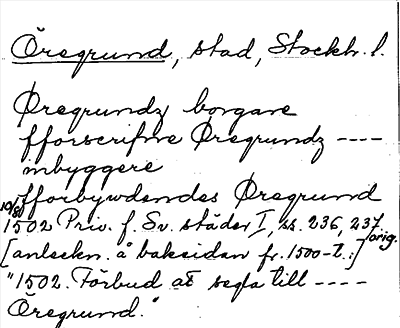 Öregrund, stad, Stockh. l.
Øregrundz borgare
fforscrifne Øregrundz ----
inbyggere
fforbywdendes Øregrund
10/8 1502 Priv. f. Sv. städer I, ss. 236, 237 orig.
[anteckn. å baksidan fr. 1500-t.:]
"1502. Förbud at segla till ----
Öregrund."